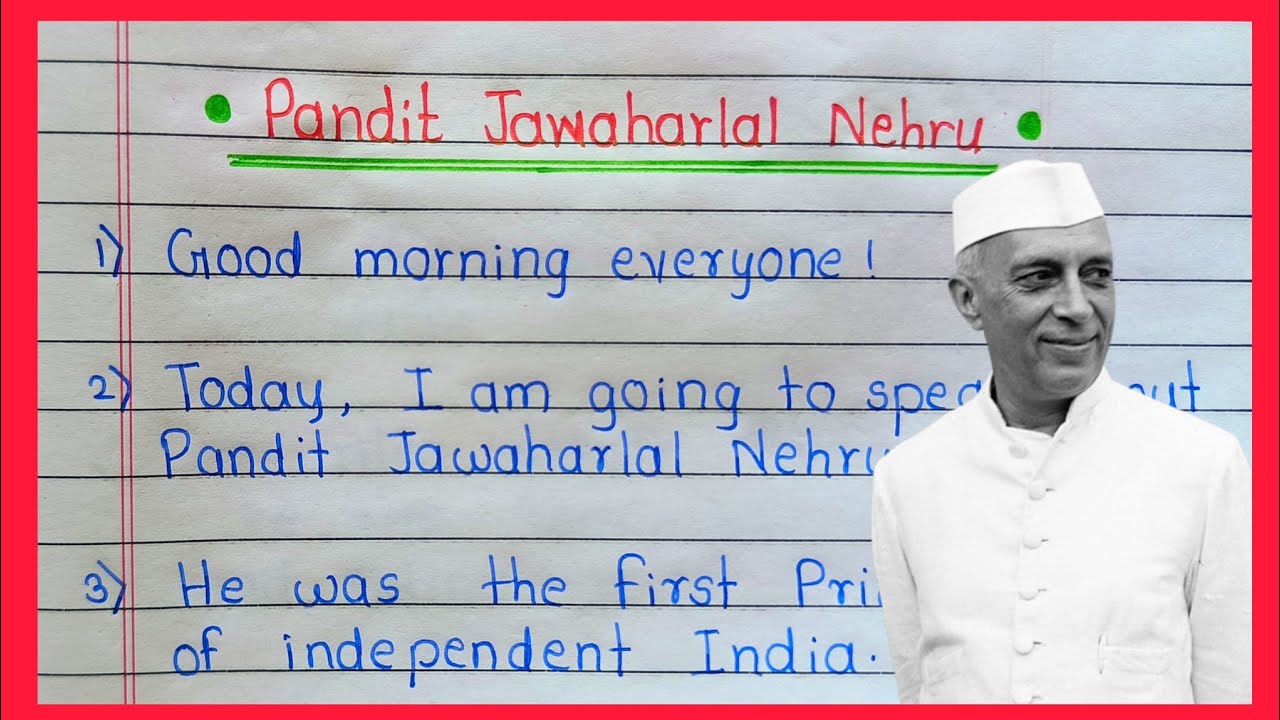 • Pandit Jawaharlal Nehru •
1) Good morning everyone!
2) Today, I am going to
Pandit Jawaharlal Nehru
3) He was the first
of independent India.